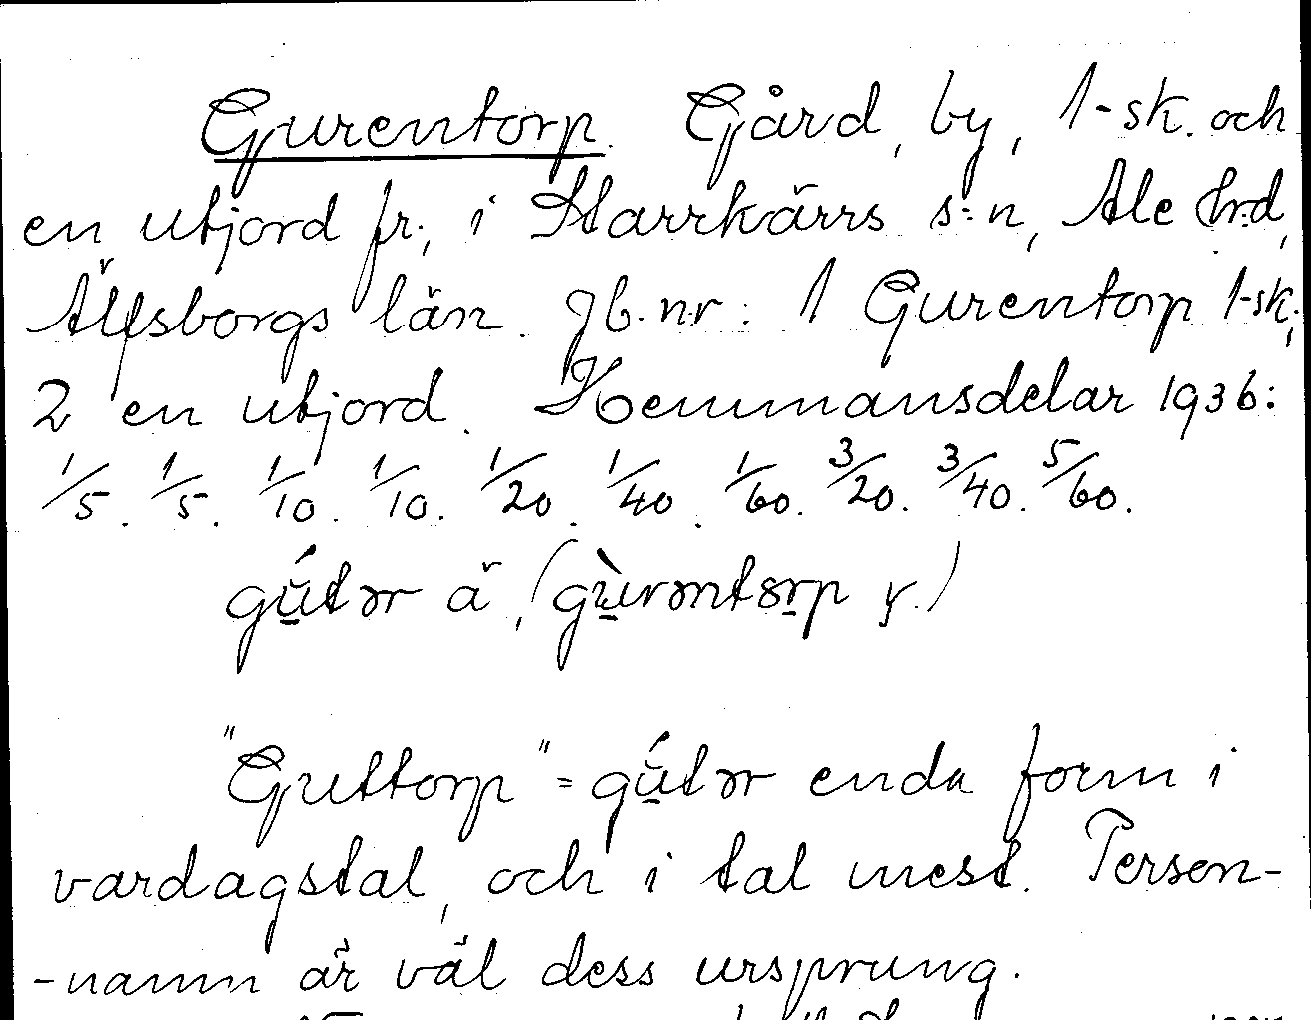 Gurentorp. Gård, by, 1-sk. och
en utjord fr., i Starrkärrs s:n, Ale h:d,
Älfsborgs län. Jb. nr: 1 Gurentorp 1-sk.;
2 en utjord. Hemmansdelar 1936:
1/5. 1/5. 1/10. 1/10. 1/20. 1/40. 1/60. 3/20. 3/40. 5/60.
gútər ä, (gùrəntorp y.)
"Guttorp" = gútər enda form i
vardagstal, och i tal mest. Person-
-namn är väl dess ursprung.